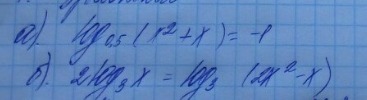 а). log₀,₅ (x² + x) = -1
б). 2 log₃ x = log₃ (2x² - x)